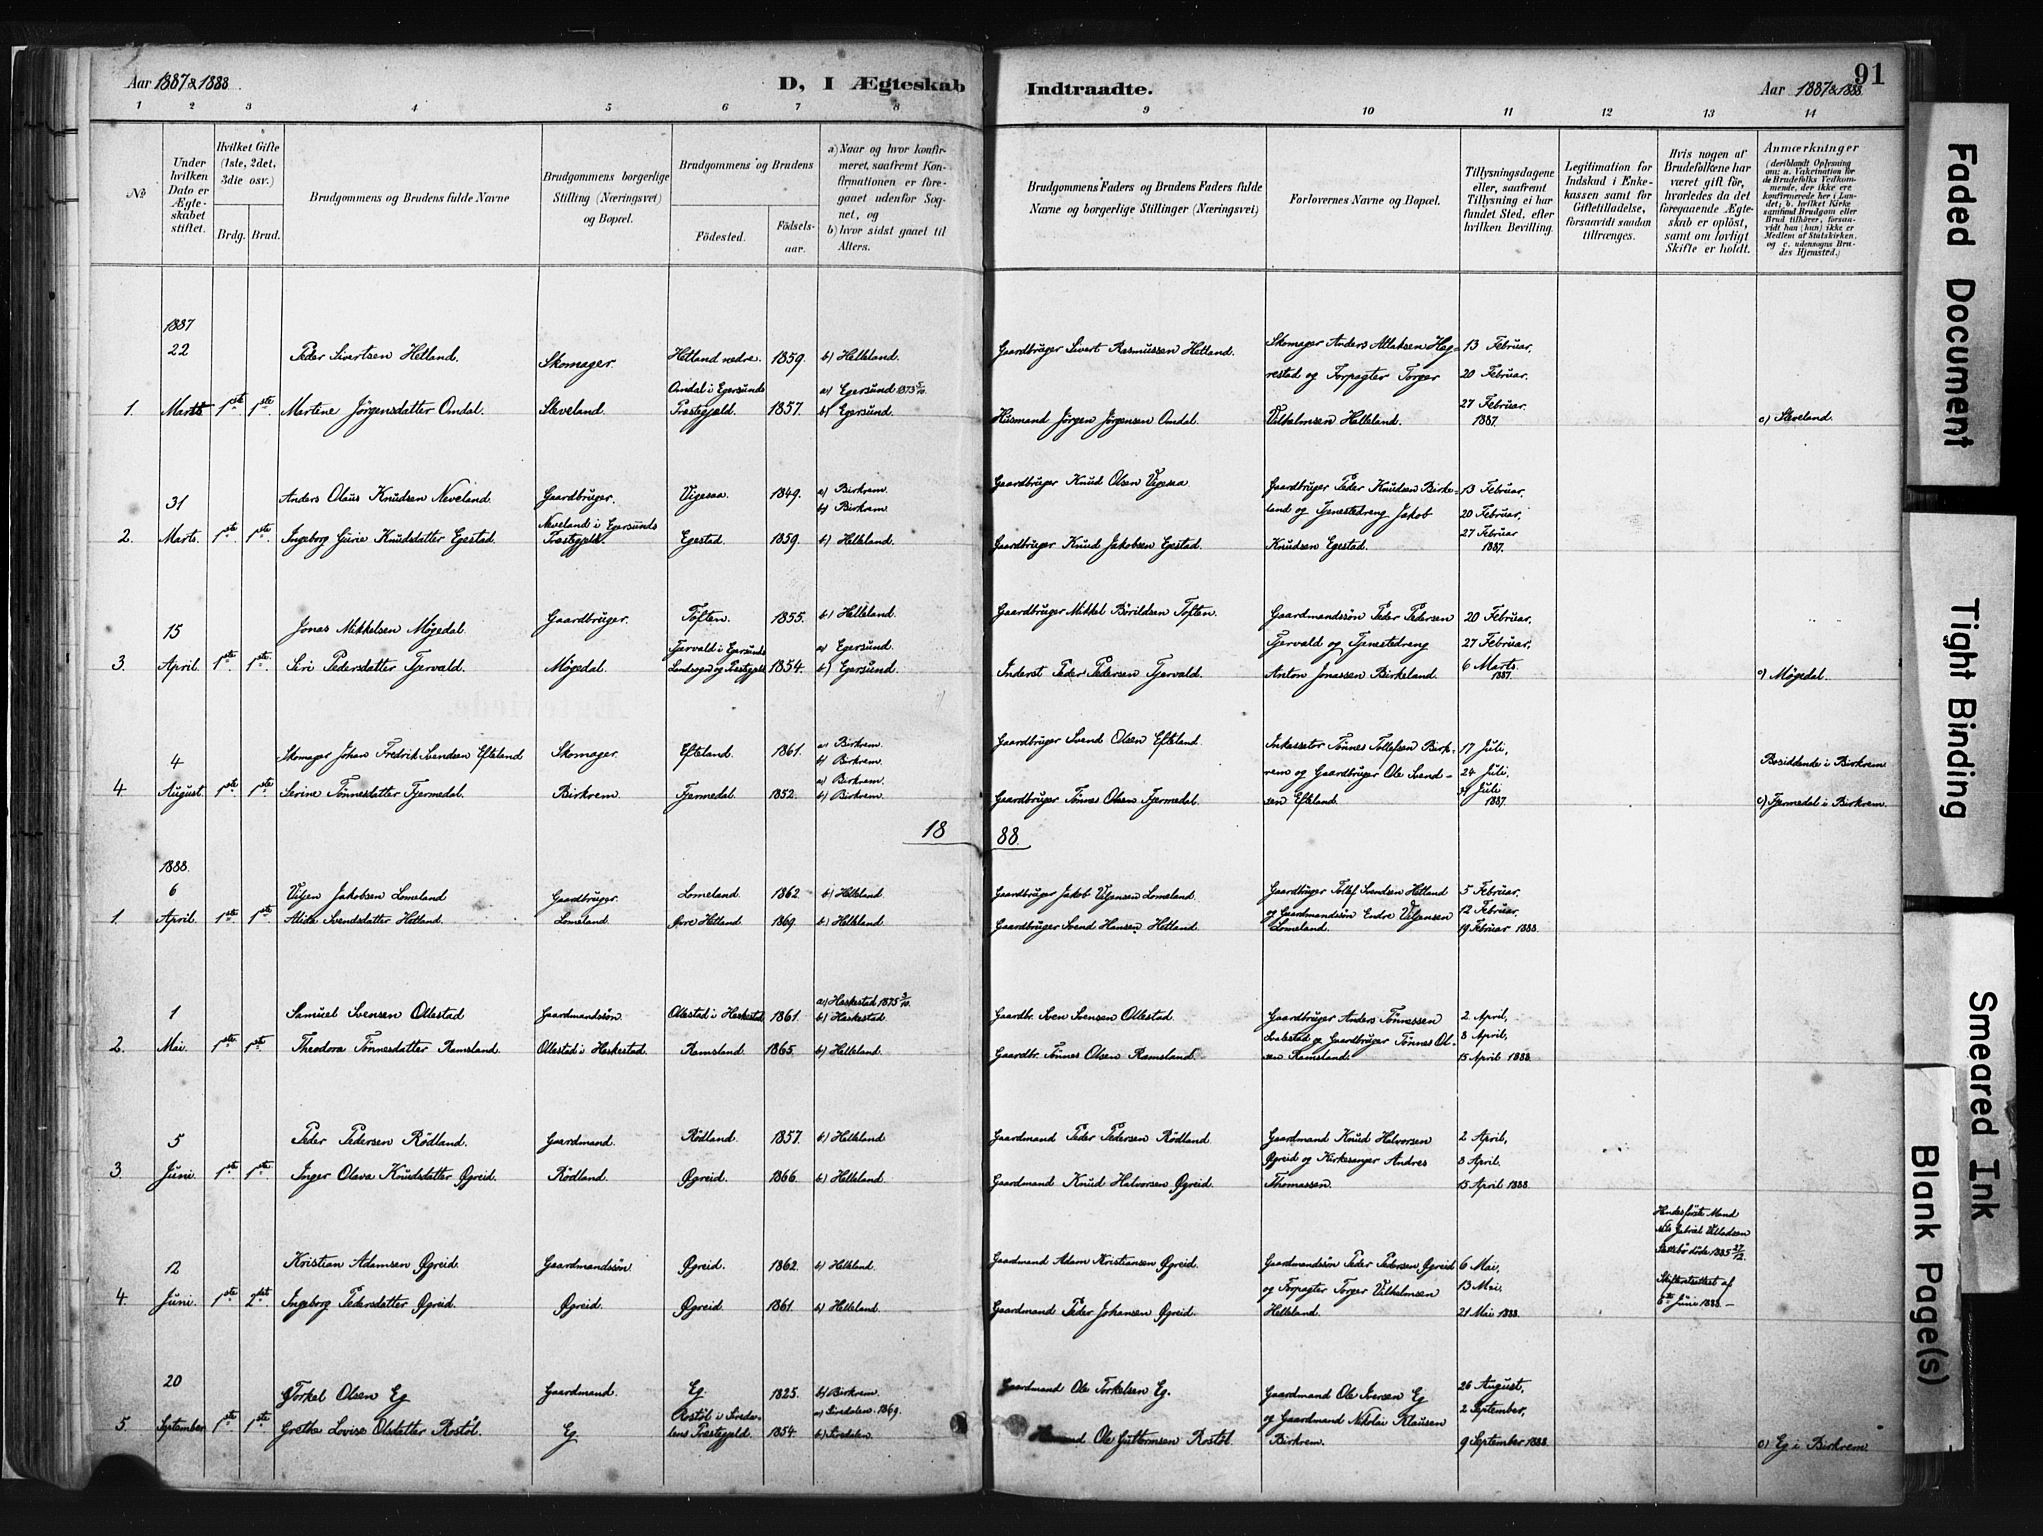 Aar 1887 & 1888.
D, I Ægteskab Indtraadte.
Aar 1887 & 1888.
91
1 2 3 4 5 6 7 8 9 10 11 12 13 14
No
Under hvilken Dato er Ægteskabet stiftet.
Hvilket Gifte (1ste, 2det, 3die osv.)
Brdg. Brud.
Brudgommens og Brudens fulde Navne
Brudgommens borgerlige Stilling (Næringsvei) og Bopæl.
Brudgommens og Brudens
Födested.
Födselsaar.
a) Naar og hvor konfirmeret, saafremt Konfirmationen er foregaaet udenfor Sognet, og
b) hvor sidst gaaet til Alters.
Brudgommens Faders og Brudens Faders fulde Navne og borgerlige Stillinger (Næringsvei)
Forlovernes Navne og Bopæl.
Tillysningsdagene eller, saafremt Tillysning ei har fundet Sted, efter hvilken Bevilling.
Legitimation for Indskud i Enkekassen samt for Giftetilladelse, forsaavidt saadan tiltrænges.
Hvis nogen af Brudefolkene har været gift för, hvorledes da det foregaaende Ægteskab er oplöst, samt om lovligt Skifte er holdt.
Anmærkninger
(deriblandt Oplysning om: a. Vakcination for de Brudefolks Vedkommende, der ikke ere konfirmerede her i Landet; b. hvilket Kirkesamfund Brudgom eller Brud tilhörer, forsaavidt han (hun) ikke er Medlem af Statskirken, og c. udensogns Brudes Hjemsted.)
1887
22 Peder Sivertsen Hetland. Skomager. Hetland nedre. 1859. b) Helleland. Gaardbruger Sivert Rasmussen Hetland. Skomager Anders Atlaksen Hegrestad og Forpagter Torger 13 Februar, 20 Februar,
1. Marts 1ste 1ste Martine Jörgensdatter Omdal. Sleveland. Omdal i Egersunds Præstegjeld. 1857. a) Egersund 1873 5/10. b) Egersund. Husmand Jörgen Jörgensen Omdal. Vilhelmsen Helleland. 27 Februar 1887. c) Sleveland.
31 Anders Olaus Knudsen Neveland. Gaardbruger. Vigesaa. 1849. a) Birkrem. b) Birkrem Gaardbruger Knud Olsen Vigesaa Gaardbruger Peder Knudsen Birkeland og Tjenestedreng Jakob 13 Februar, 20 Februar,
2. Marts. 1ste 1ste Ingeborg Gurie Knudsdatter Egestad. Neveland i Egersunds Præstegjeld. Egestad. 1859 b) Helleland. Gaardbruger Knud Jakobsen Egestad. Knudsen Egestad. 27 Februar 1887.
15 Jonas Mikkelsen Møgedal. Gaardbruger. Toften. 1855. b) Helleland. Gaardbruger Mikkel Börildsen Toften. Gaardmandssön Peder Pedersen Tjervald og Tjenestedreng 20 Februar, 27 Februar,
3. April. 1ste 1ste Siri Pedersdatter Tjervald. Møgedal. Tjervald i Egersunds Landsogn og Præstegjeld 1854. a) Egersund. b) Egersund. Inderst Peder Pedersen Tjervald. Anton Jonassen Birkeland. 6 Marts. 1887. c) Møgedal.
4 Skomager Johan Fredrik Svendsen Efteland Skomager. Efteland. 1861. a) Birkrem. b) Birkrem. Gaardbruger Svend Olsen Efteland Inkassator Tönnes Tollefsen Birkrem og Gaardbruger Ole Svend- 17 Juli, 24 Juli, Bosiddende i Birkrem
4. August. 1ste 1ste Serine Tönnesdatter Tjermedal. Birkrem. Tjermedal. 1852. a) Birkrem. b) Birkrem. Gaardbruger Tönnes Olsen Tjermedal sen Efteland. 31 Juli 1887. c) Tjermedal i Birkrem.
18 88.
1888.
6 Viljen Jakobsen Lomeland Gaardbruger. Lomeland. 1862 b) Helleland. Gaardbruger Jakob Viljensen Lomeland. Gaardbruger Tollef Svendsen Hetland 5 Februar.
1 April. 1ste 1ste Alida Svendsdatter Hetland. Lomeland. Øvre Hetland 1869. b) Helleland. Gaardbruger Svend Hansen Hetland og Gaardmandssön Endre Viljensen Lomeland. 12 Februar. 19 Februar 1888.
1 Samuel Svensen Ollestad Gaardmandssön. Ollestad i Heskestad 1861. a) Heskestad 1875 3/10. b) Heskestad. Gaardbr. Sven Svensen Ollestad. Gaardbruger Anders Tönnessen 2 April,
2. Mai. 1ste 1ste Theodora Tönnesdatter Ramsland. Ollestad i Heskestad. Ramsland. 1865. b) Helleland. Gaardbr. Tönnes Olsen Ramsland. og Gaardbruger Tönnes Olsen Ramsland. 8 April, 15 April 1888.
5 Peder Pedersen Rödland. Gaardmand. Rödland. 1857. b) Helleland. Gaardmand Peder Pedersen Rödland. Gaardmand Knud Halvorsen Øgreid og Kirkesanger Andres 2 April, 8 April.
3. Juni. 1ste 1ste Inger Olava Knudsdatter Øgreid. Rödland. Øgreid. 1866. b) Helleland. Gaardmand Knud Halvorsen Øgreid. Thomassen. 15 April 1888.
12 Kristian Adamsen Øgreid. Gaardmandssön. Øgreid. 1862. b) Helleland. Gaardmand Adam Kristiansen Øgreid. Gaardmandssön Peder Pedersen Øgreid og Forpagter Torger Vilhelmsen 6 Mai, 13 Mai, Hendes förste Mand Nils Gabriel döde 1885 27/12.
4. Juni. 1ste 2det Ingeborg Pedersdatter Øgreid. Øgreid. Øgreid 1861. b) Helleland. Gaardmand Peder Johansen Øgreid. Helleland. 21 Mai 1888. Skifteattest af 6te Juni 1888.
20 Torkel Olsen Eg Gaardmand. Eg. 1825. b) Birkrem. Gaardmand Ole Torkelsen Eg. Gaardmand Ole Iversen Eg og Gaardmand Nikolai Klausen 26 August, 2 September,
5. September 1ste 1ste Grethe Lovise Olsdatter Rostöl. Eg. Rostöl i Siredalens Præstegjeld 1854. a) Siredalen. 1869. b) Siredalen. Ole Guttormsen Rostöl. Birkrem. 9 September 1888. c) Eg i Birkrem.
Faded Document
Tight Binding
Smeared Ink
Blank Page(s)